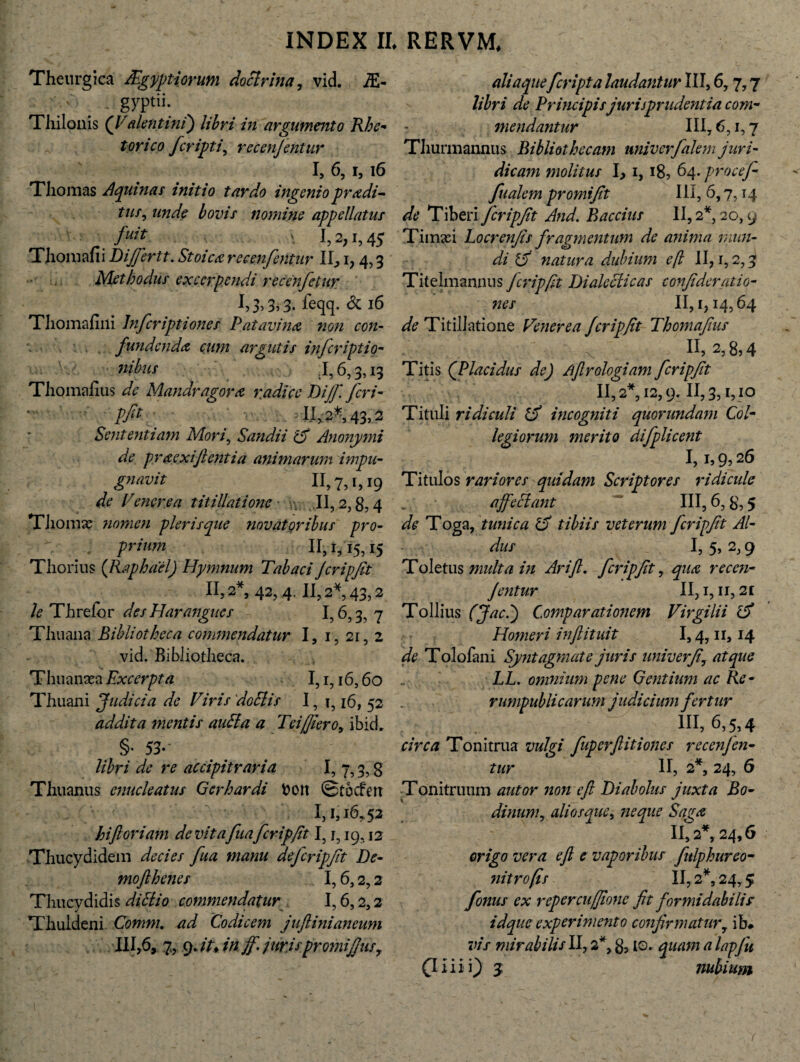 INDEX II. RERVM.
Theurgica Ægyptiorum doctrina, vid. Æ-
gyptii.
Thilonis (Valentini) libri in argumento Rhe-
torico ſcripti, recenſentur
I, 6, 1, 16
Thomas Aquinas initio tardo ingenio prædi-
tus, unde bovis nomine appellatus
fuit I, 2, 1, 45
Thomaſii Diſſertt. Stoicæ recenſentur II, 1, 4, 3
Methodus excerpendi recenſetur
I, 3, 3, 3. ſeqq. & 16
Thomaſini Inſcriptiones Patavinæ non con-
fundendæ cum argutis inſcriptio-
nibus I, 6, 3, 13
Thomaſius de Mandragoræ radice Diſſ. ſcri-
pſit II, 2*, 43, 2
Sententiam Mori, Sandii & Anonymi
de præexiſtentia animarum impu-
gnavit II, 7, 1, 19
de Venerea titillatione II, 2, 8, 4
Thomæ nomen plerisque novatoribus pro-
prium II, 1, 15, 15
Thorius (Raphaël) Hymnum Tabaci ſcripſit
II, 2*, 42, 4. II, 2*, 43, 2
le Threſor des Harangues I, 6, 3, 7
Thuana Bibliotheca commendatur I, 1, 21, 2
vid. Bibliotheca.
Thuanæa Excerpta I, 1, 16, 60
Thuani Judicia de Viris doctis I, 1, 16, 52
addita mentis aucta a Teiſſiero, ibid.
§. 53.
libri de re accipitraria I, 7, 3, 8
Thuanus enucleatus Gerhardi von Stöcken
I, 1, 16, 52
hiſtoriam de vita ſua ſcripſit I, 1, 19, 12
Thucydidem decies ſua manu deſcripſit De-
moſthenes I, 6, 2, 2
Thucydidis dictio commendatur I, 6, 2, 2
Thuldeni Comm. ad Codicem juſtinianeum
III, 6, 7, 9. it. in ff. juris promiſſus,
aliaque ſcripta laudantur III, 6, 7, 7
libri de Principis jurisprudentia com-
mendantur III, 6, 1, 7
Thurmannus Bibliothecam univerſalem juri-
dicam molitus I, 1, 18, 64. proceſ-
ſualem promiſit III, 6, 7, 14
de Tiberi ſcripſit And. Baccius II, 2*, 20, 9
Timæi Locrenſis fragmentum de anima mun-
di & natura dubium eſt II, 1, 2, 3
Titelmannus ſcripſit Dialecticas conſideratio-
nes II, 1, 14, 64
de Titillatione Venerea ſcripſit Thomaſius
II, 2, 8, 4
Titis (Placidus de) Aſtrologiam ſcripſit
II, 2*, 12, 9. II, 3, 1, 10
Tituli ridiculi & incogniti quorundam Col-
legiorum merito diſplicent
I, 1, 9, 26
Titulos rariores quidam Scriptores ridicule
affectant III, 6, 8, 5
de Toga, tunica & tibiis veterum ſcripſit Al-
dus I, 5, 2, 9
Toletus multa in Ariſt. ſcripſit, quæ recen-
ſentur II, 1, 11, 21
Tollius (Jac.) Comparationem Virgilii &
Homeri inſtituit I, 4, 11, 14
de Toloſani Syntagmate juris univerſi, atque
LL. omnium pene Gentium ac Re-
rumpublicarum judicium fertur
III, 6, 5, 4
circa Tonitrua vulgi ſuperſtitiones recenſen-
tur II, 2*, 24, 6
Tonitruum autor non eſt Diabolus juxta Bo-
dinum, aliosque, neque Sagæ
II, 2*, 24, 6
origo vera eſt e vaporibus ſulphureo-
nitroſis II, 2*, 24, 5
ſonus ex repercuſſione fit formidabilis
idque experimento confirmatur, ib.
vis mirabilis II, 2*, 8, 10. quam a lapſu
(Iiiii) 3 nubium